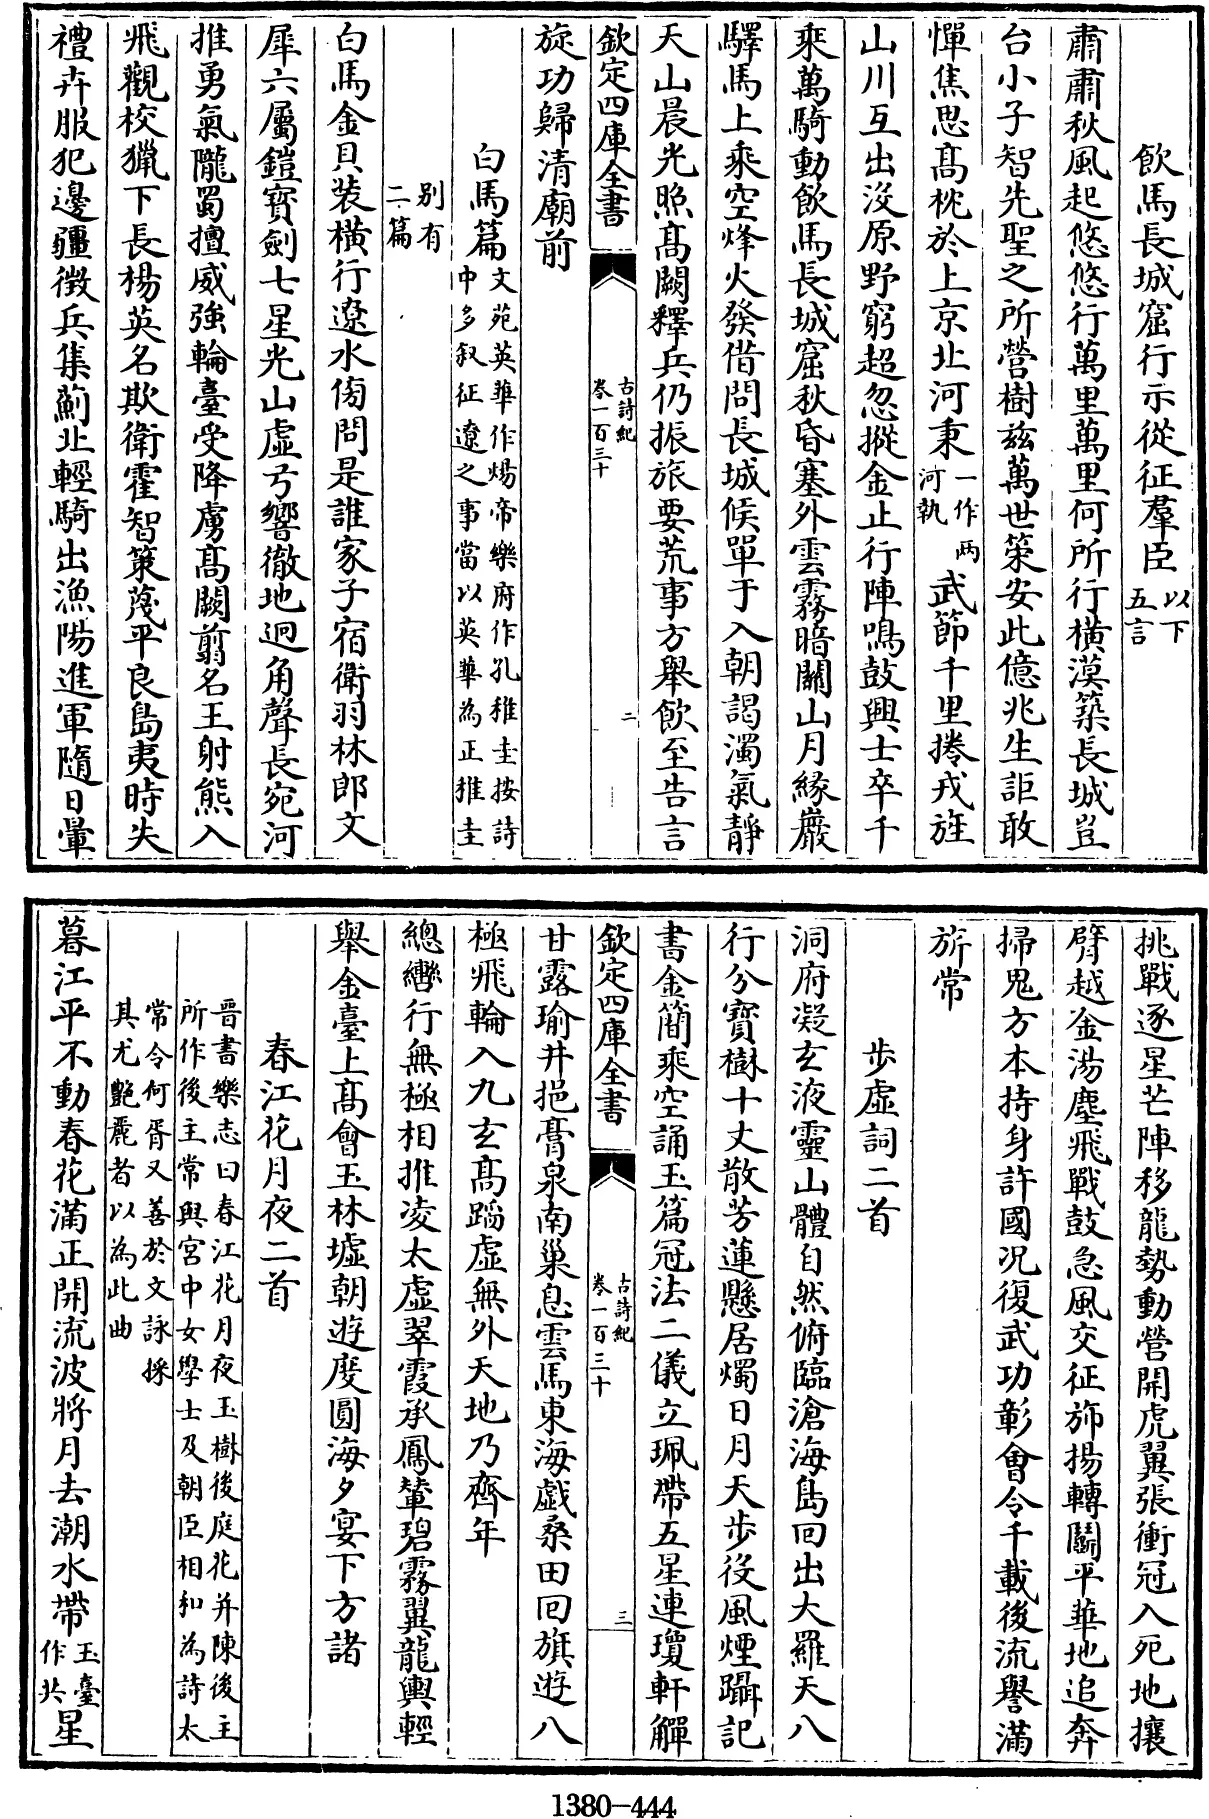 飲馬長城窟行示從征羣臣以下五言
肅肅秋風起悠悠行萬里萬里何所行橫漠築長城豈
台小子智先聖之所營樹兹萬世策安此億兆生詎敢
憚焦思髙枕於上京北河秉一作兩河執武節千里捲戎旌
山川互出没原野窮超忽摐金止行陣鳴鼓興士卒千
乘萬騎動飲馬長城窟秋昏塞外雲霧暗關山月緣巖
驛馬上乘空烽火發借問長城候單于入朝謁濁氣靜
天山晨光照髙闕釋兵仍振旅要荒事方舉飲至告言
旋功歸清廟前
欽定四庫全書
古詩紀
卷一百三十
二
白馬篇文苑英華作煬帝樂府作孔稚圭按詩中多叙征遼之事當以英華為正稚圭
别有二篇
白馬金貝装橫行遼水傍問是誰家子宿衛羽林郎文
犀六屬鎧寶劍七星光山虛弓響徹地迥角聲長宛河
推勇氣隴蜀擅威強輪臺受降虜髙闕翦名王射熊入
飛觀校獵下長楊英名欺衛霍智策蔑平良島夷時失
禮卉服犯邊疆徵兵集薊北輕騎出漁陽進軍隨日暈
挑戰逐星芒陣移龍勢動營開虎翼張衝冠入死地攘
臂越金湯塵飛戰鼓急風交征斾揚轉鬭平華地追奔
掃鬼方本持身許國况復武功彰會令千載後流譽滿
旂常
步虛詞二首
洞府凝玄液靈山體自然俯臨滄海島回出大羅天八
行分寶樹十丈散芳蓮懸居燭日月天步役風煙躡記
書金簡乘空誦玉篇冠法二儀立珮帶五星連瓊軒觶
欽定四庫全書
古詩紀
卷一百三十
三
甘露瑜井挹膏泉南巢息雲馬東海戲桑田回旗遊八
極飛輪入九玄髙蹈虛無外天地乃齊年
總轡行無極相推凌太虛翠霞承鳳輦碧霧翼龍輿輕
舉金臺上髙會玉林墟朝遊度圓海夕宴下方諸
春江花月夜二首
晉書樂志曰春江花月夜玉樹後庭花并陳後主
所作後主常與宮中女學士及朝臣相和為詩太
常令何胥又善於文詠採
其尤艷麗者以為此曲
暮江平不動春花滿正開流波將月去潮水帶玉臺作共星
1380-444